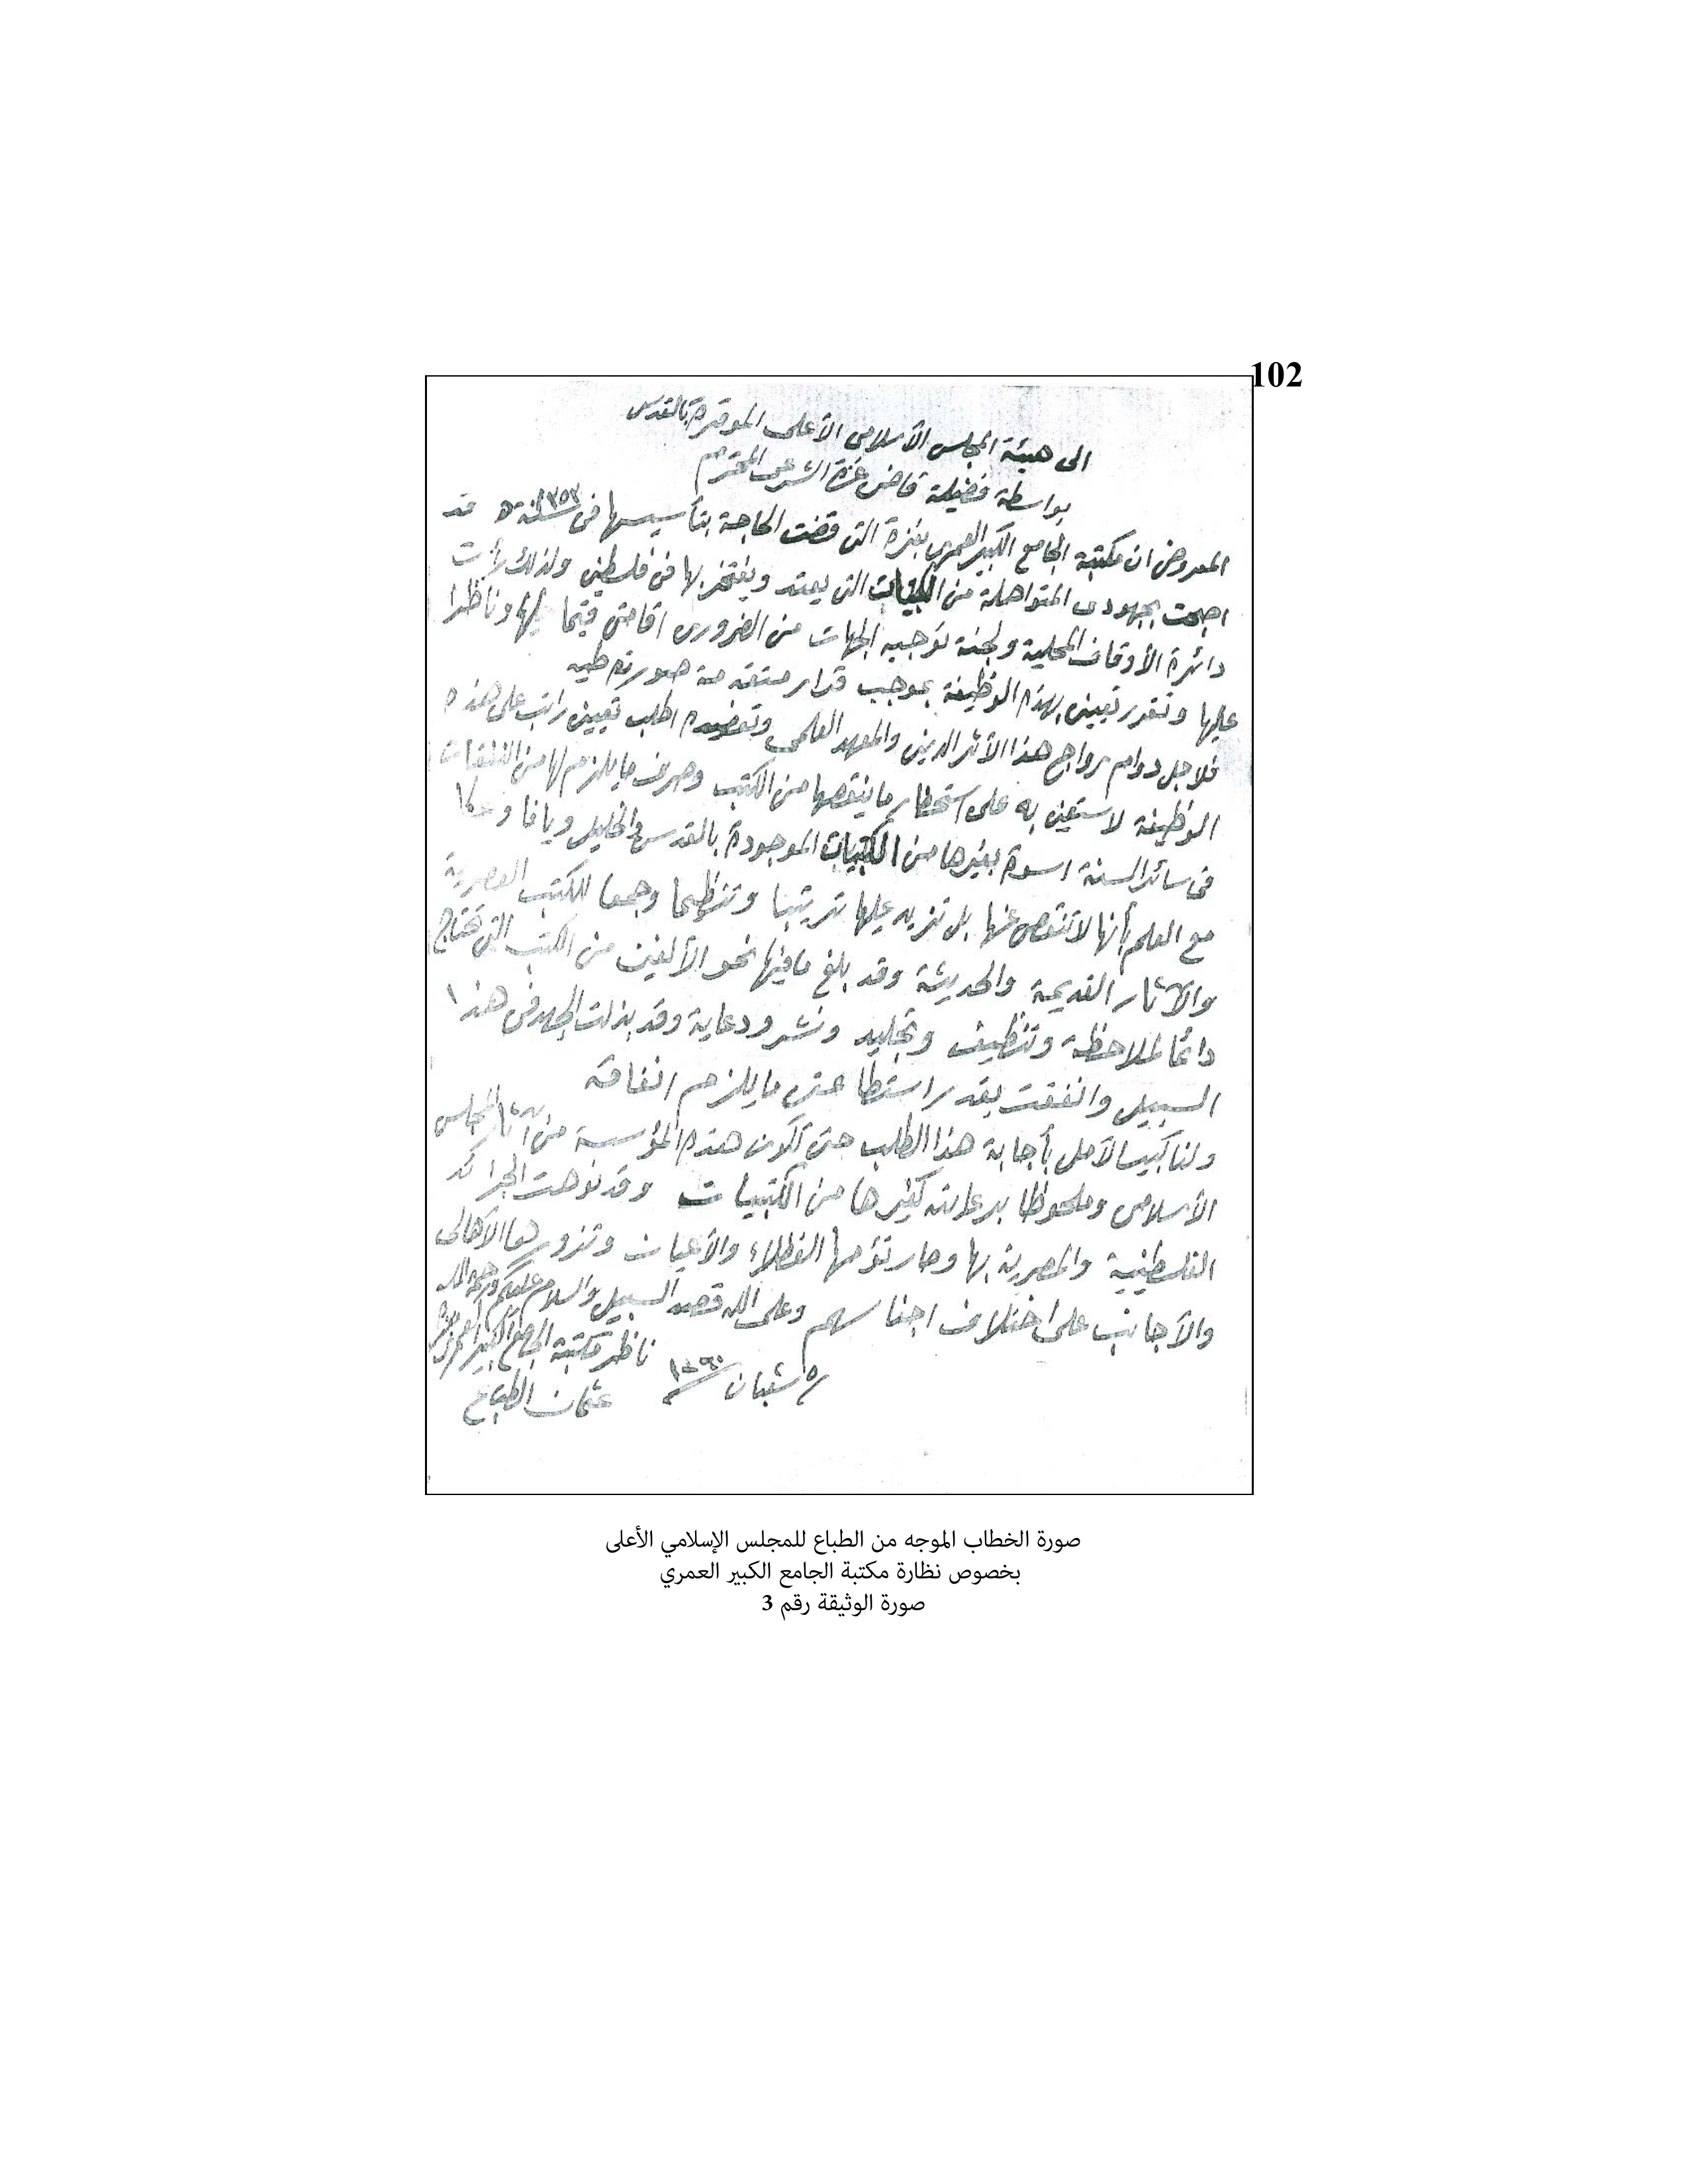 102
الى هيئة المجلس الأسلامى الأعلى الموقرة بالقدس
بواسطة فضيلة قاضى غزة الشرعى المحترم
المعروض ان مكتبة الجامع الكبير العمرى بغزة التى قضت الحاجة بتأسيسها فى سنة ١٣٥٣ ه قد
اصبحت بجهودى المتواصلة من المكتبات التى يعتد ويفتخر بها فى فلسطين ولذلك رأت
دائرة الأوقاف المحلية ولجنة توجيه الجهات من الضرورى اقامتى قيما وناظرا
عليها وتقرر تعيينى بهذه الوظيفة بموجب قرار صورته طيه
فلاجل دوام رواج هذا الأثر الدينى والمعهد العلمى وتعضيده اطلب تعيين راتب على هذه
الوظيفة لاستعين به على استحضار ما ينقصها من الكتب وصرف ما يلزم لها من النفقات
فى سائر السنة اسوة بغيرها من المكتبات الموجودة بالقدس والخليل ويافا وعكا
مع العلم بأنها لا تنقص عنها بل تزيد عليها ترتيبا وتنظيما وجمعا للكتب العصرية
والآثار القديمة والحديثة وقد بلغ ما فيها نحو الألفين من الكتب التى تحتاج
دائما لملاحظة وتنظيف وتجليد ونشر ودعاية وقد بذلت الجهد فى هذا
السبيل وانفقت بقدر استطاعتى ما يلزم انفاقه
ولنا كبير الأمل بأجابة هذا الطلب حتى تكون هذه المؤسسة من آثار المجلس
الأسلامى وملحوظا برعايته كغيرها من المكتبات وقد نوهت الجرائد
الفلسطينية والمصرية بها وصار تؤمها الفضلاء والأعيان وتزورها الأهالى
والأجانب على اختلاف اجناسهم وعلى الله قصد السبيل والسلام عليكم ورحمة الله
٥ شعبان ١٣٦٠ ناظر مكتبة الجامع الكبير العمرى بغزة
عثمان الطباع
صورة الخطاب الموجه من الطباع للمجلس الإسلامي الأعلى
بخصوص نظارة مكتبة الجامع الكبير العمري
صورة الوثيقة رقم 3